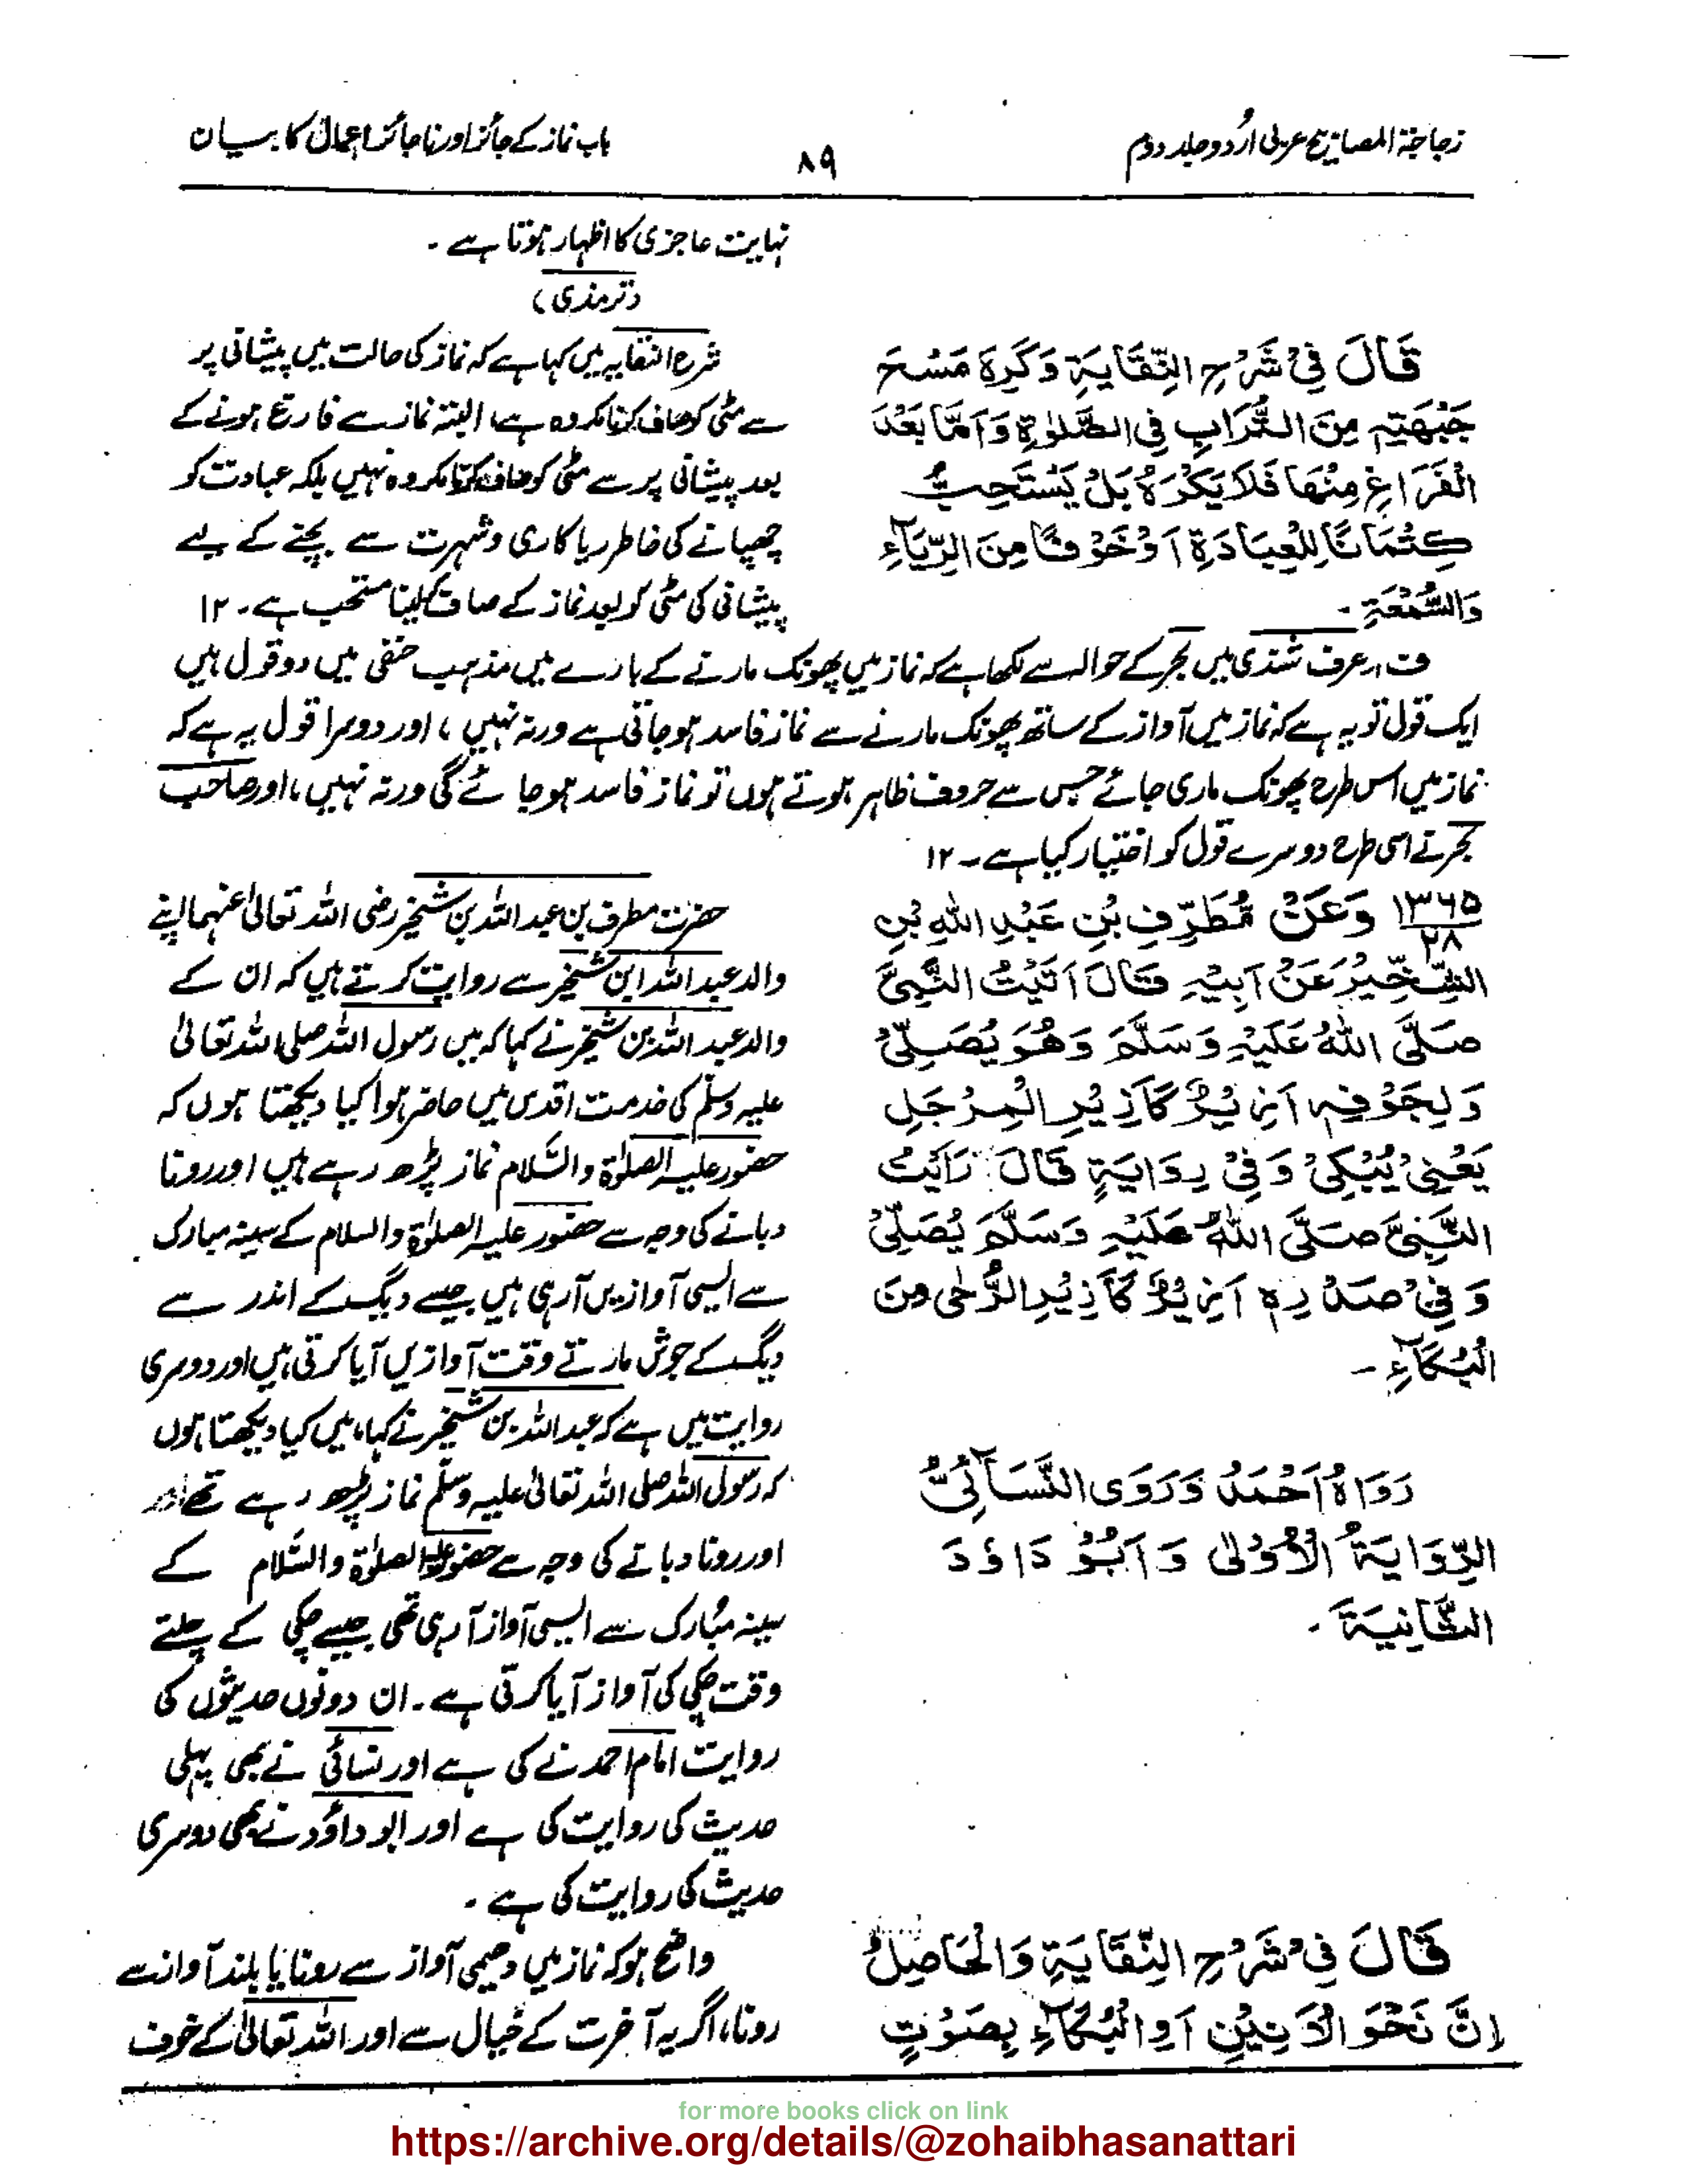 زجاجۃ المصابیح عربی اُردو جلد دوم
٨٩
باب نماز کے جائز اور ناجائز اعمال کا بیان
نہایت عاجزی کا اظہار ہوتا ہے ۔
(ترمذی)
قَالَ فِیْ شَرْحِ النِّقَایَۃِ وَکَرِہَ مَسْحَ
جَبْھَتِہٖ مِنَ التُّرَابِ فِی الصَّلٰوۃِ وَاَمَّا بَعْدَ
الْفَرَاغِ مِنْھَا فَلَا یَکْرَہُ بَلْ یَسْتَحِبُّ
کِتْمَانًا لِلْعِبَادَۃِ اَوْ خَوْفًا مِنَ الرِّیَآءِ
وَالسُّمْعَۃِ ۔
شرح النقایہ میں کہا ہے کہ نماز کی حالت میں پیشانی پر
سے مٹی کو صاف کرنا مکروہ ہے، البتہ نماز سے فارغ ہونے کے
بعد پیشانی پر سے مٹی کو صاف کرنا مکروہ نہیں بلکہ عبادت کو
چھپانے کی خاطر ریا کاری و شہرت سے بچنے کے لیے
پیشانی کی مٹی کو بعد نماز کے صاف کر لینا مستحب ہے۔ ۱۲
ف ۔ عرف شذی میں بحر کے حوالہ سے لکھا ہے کہ نماز میں پھونک مارنے کے بارے میں مذہب حنفی میں دو قول ہیں
ایک قول تو یہ ہے کہ نماز میں آواز کے ساتھ پھونک مارنے سے نماز فاسد ہو جاتی ہے ورنہ نہیں ، اور دوسرا قول یہ ہے کہ
نماز میں اس طرح پھونک ماری جائے جس سے حروف ظاہر ہوتے ہوں تو نماز فاسد ہو جائے گی ورنہ نہیں ، اور صاحب
بحر نے اسی طرح دوسرے قول کو اختیار کیا ہے ۔ ۱۲
۱۳۶۵ وَعَنْ مُّطَرِّفِ بْنِ عَبْدِ اللہِ بْنِ
۲۸
الشِّخِّیْرُ عَنْ اَبِیْہِ قَالَ اَتَیْتُ النَّبِیَّ
صَلَّی اللہُ عَلَیْہِ وَسَلَّمَ وَھُوَ یُصَلِّیْ
وَلِجَوْفِہٖ اَزِیْزٌ کَاَزِیْزِ الْمِرْجَلِ
یَعْنِیْ یُبْکِیْ وَفِیْ رِوَایَۃٍ قَالَ رَاَیْتُ
النَّبِیَّ صَلَّی اللہُ عَلَیْہِ وَسَلَّمَ یُصَلِّیْ
وَفِیْ صَدْرِہٖ اَزِیْزٌ کَاَزِیْزِ الرَّحٰی مِنَ
الْبُکَآءِ ۔
رَوَاہُ اَحْمَدُ وَرَوَی النَّسَآئِیُّ
الرِّوَایَۃُ الْاُوْلٰی وَاَبُوْ دَاوٗدَ
الثَّانِیَۃَ ۔
حضرت مطرف بن عبد اللہ بن شخیر رضی اللہ تعالیٰ عنہما اپنے
والد عبد اللہ ابن شخیر سے روایت کرتے ہیں کہ ان کے
والد عبد اللہ بن شخیر نے کہا کہ میں رسول اللہ صلی اللہ تعالیٰ
علیہ وسلم کی خدمت اقدس میں حاضر ہوا کیا دیکھتا ہوں کہ
حضور علیہ الصلوٰۃ والسَّلام نماز پڑھ رہے ہیں اور رونا
دبانے کی وجہ سے حضور علیہ الصلوٰۃ والسلام کے سینہ مبارک
سے ایسی آوازیں آرہی ہیں جیسے دیگ کے اندر سے
دیگ کے جوش مارتے وقت آوازیں آیا کرتی ہیں اور دوسری
روایت میں ہے کہ عبد اللہ بن شخیر نے کہا، میں کیا دیکھتا ہوں
کہ رسول اللہ صلی اللہ تعالیٰ علیہ وسلّم نماز پڑھ رہے تھے اور
اور رونا دبانے کی وجہ سے حضور علیہ الصلوٰۃ والسَّلام کے
سینہ مبارک سے ایسی آواز آرہی تھی جیسے چکی کے چلتے
وقت چکی کی آواز آیا کرتی ہے ۔ ان دونوں حدیثوں کی
روایت امام احمد نے کی ہے اور نسائی نے بھی پہلی
حدیث کی روایت کی ہے اور ابو داؤد نے بھی دوسری
حدیث کی روایت کی ہے ۔
قَالَ فِیْ شَرْحِ النِّقَایَۃِ وَالْحَاصِلُ
اِنَّ نَحْوَ الْاَنِیْنِ اَوِ الْبُکَآءِ بِصَوْتٍ
واضح ہو کہ نماز میں دھیمی آواز سے رونا یا بلند آواز سے
رونا، اگر یہ آخرت کے خیال سے اور اللہ تعالیٰ کے خوف
for more books click on link
https://archive.org/details/@zohaibhasanattari